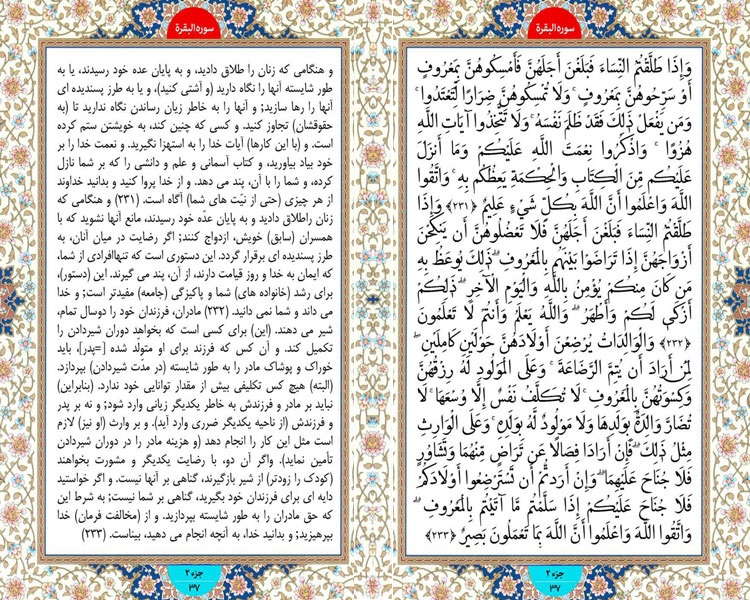 سوره البقرة
وَإِذَا طَلَّقْتُمُ النِّسَاءَ فَبَلَغْنَ أَجَلَهُنَّ فَأَمْسِكُوهُنَّ بِمَعْرُوفٍ
أَوْ سَرِّحُوهُنَّ بِمَعْرُوفٍ ۚ وَلَا تُمْسِكُوهُنَّ ضِرَارًا لِّتَعْتَدُوا ۚ
وَمَن يَفْعَلْ ذَٰلِكَ فَقَدْ ظَلَمَ نَفْسَهُ ۚ وَلَا تَتَّخِذُوا آيَاتِ اللَّهِ
هُزُوًا ۚ وَاذْكُرُوا نِعْمَتَ اللَّهِ عَلَيْكُمْ وَمَا أَنزَلَ
عَلَيْكُم مِّنَ الْكِتَابِ وَالْحِكْمَةِ يَعِظُكُم بِهِ ۚ وَاتَّقُوا
اللَّهَ وَاعْلَمُوا أَنَّ اللَّهَ بِكُلِّ شَيْءٍ عَلِيمٌ ﴿٢٣١﴾ وَإِذَا
طَلَّقْتُمُ النِّسَاءَ فَبَلَغْنَ أَجَلَهُنَّ فَلَا تَعْضُلُوهُنَّ أَن يَنكِحْنَ
أَزْوَاجَهُنَّ إِذَا تَرَاضَوْا بَيْنَهُم بِالْمَعْرُوفِ ۗ ذَٰلِكَ يُوعَظُ بِهِ
مَن كَانَ مِنكُمْ يُؤْمِنُ بِاللَّهِ وَالْيَوْمِ الْآخِرِ ۗ ذَٰلِكُمْ
أَزْكَىٰ لَكُمْ وَأَطْهَرُ ۗ وَاللَّهُ يَعْلَمُ وَأَنتُمْ لَا تَعْلَمُونَ
﴿٢٣٢﴾ وَالْوَالِدَاتُ يُرْضِعْنَ أَوْلَادَهُنَّ حَوْلَيْنِ كَامِلَيْنِ ۖ
لِمَنْ أَرَادَ أَن يُتِمَّ الرَّضَاعَةَ ۚ وَعَلَى الْمَوْلُودِ لَهُ رِزْقُهُنَّ
وَكِسْوَتُهُنَّ بِالْمَعْرُوفِ ۚ لَا تُكَلَّفُ نَفْسٌ إِلَّا وُسْعَهَا ۚ لَا
تُضَارَّ وَالِدَةٌ بِوَلَدِهَا وَلَا مَوْلُودٌ لَّهُ بِوَلَدِهِ ۚ وَعَلَى الْوَارِثِ
مِثْلُ ذَٰلِكَ ۗ فَإِنْ أَرَادَا فِصَالًا عَن تَرَاضٍ مِّنْهُمَا وَتَشَاوُرٍ
فَلَا جُنَاحَ عَلَيْهِمَا ۗ وَإِنْ أَرَدتُّمْ أَن تَسْتَرْضِعُوا أَوْلَادَكُمْ
فَلَا جُنَاحَ عَلَيْكُمْ إِذَا سَلَّمْتُم مَّا آتَيْتُم بِالْمَعْرُوفِ ۗ
وَاتَّقُوا اللَّهَ وَاعْلَمُوا أَنَّ اللَّهَ بِمَا تَعْمَلُونَ بَصِيرٌ ﴿٢٣٣﴾
جزء ۲
۳۷
سوره البقرة
و هنگامی که زنان را طلاق دادید، و به پایان عده خود رسیدند، یا به
طور شایسته آنها را نگاه دارید (و آشتی کنید)، و یا به طرز پسندیده ای
آنها را رها سازید; و آنها را به خاطر زیان رساندن نگاه ندارید تا (به
حقوقشان) تجاوز کنید. و کسی که چنین کند، به خویشتن ستم کرده
است. و (با این کارها) آیات خدا را به استهزا نگیرید. و نعمت خدا را بر
خود بیاد بیاورید، و کتاب آسمانی و علم و دانشی را که بر شما نازل
کرده، و شما را با آن، پند می دهد. و از خدا پروا کنید و بدانید خداوند
از هر چیزی (حتی از نیّت های شما) آگاه است. (۲۳۱) و هنگامی که
زنان راطلاق دادید و به پایان عدّه خود رسیدند، مانع آنها نشوید که با
همسران (سابق) خویش، ازدواج کنند; اگر رضایت در میان آنان، به
طرز پسندیده ای برقرار گردد. این دستوری است که تنهاافرادی از شما،
که ایمان به خدا و روز قیامت دارند، از آن، پند می گیرند. این (دستور)،
برای رشد (خانواده های) شما و پاکیزگی (جامعه) مفیدتر است; و خدا
می داند و شما نمی دانید. (۲۳۲) مادران، فرزندان خود را دوسال تمام،
شیر می دهند. (این) برای کسی است که بخواهد دوران شیردادن را
تکمیل کند. و آن کس که فرزند برای او متولّد شده [=پدر]، باید
خوراک و پوشاک مادر را به طور شایسته (در مدّت شیردادن) بپردازد.
(البته) هیچ کس تکلیفی بیش از مقدار توانایی خود ندارد. (بنابراین)
نباید بر مادر و فرزندش به خاطر یکدیگر زیانی وارد شود; و نه بر پدر
و فرزندش (از ناحیه یکدیگر ضرری وارد آید). و بر وارث (او نیز) لازم
است مثل این کار را انجام دهد (و هزینه مادر را در دوران شیردادن
تأمین نماید). واگر آن دو، با رضایت یکدیگر و مشورت بخواهند
(کودک را زودتر) از شیر بازگیرند، گناهی بر آنها نیست. و اگر خواستید
دایه ای برای فرزندان خود بگیرید، گناهی بر شما نیست; به شرط این
که حق مادران را به طور شایسته بپردازید. و از (مخالفت فرمان) خدا
بپرهیزید; و بدانید خدا، به آنچه انجام می دهید، بیناست. (۲۳۳)
جزء ۲
۳۷